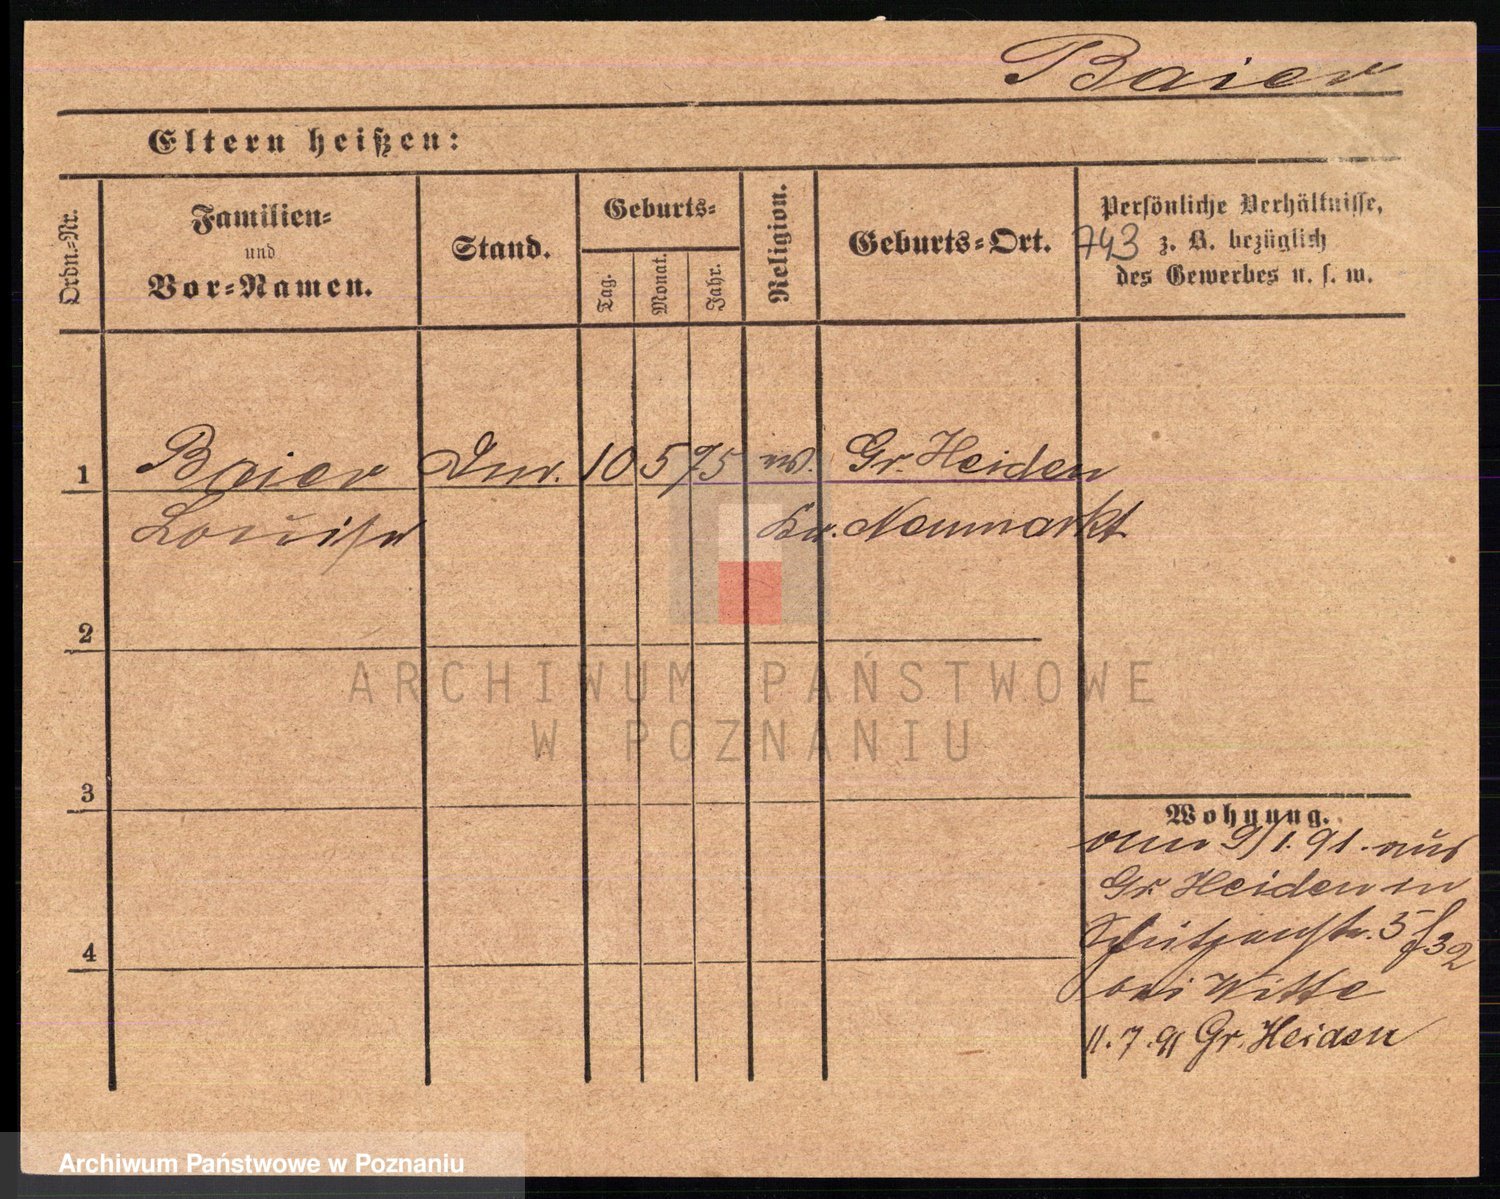 Baier
Eltern heißen:
Ordn.-Nr.
Familien-
und
Vor-Namen.
Stand.
Geburts-
Tag.
Monat.
Jahr.
Religion.
Geburts-Ort.
Persönliche Verhältnisse,
743 z. B. bezüglich
des Gewerbes u. s. w.
1 Baier 10 5 75 Gr. Heiden
Louise Kr. Neumarkt
2
3
4
ARCHIWUM PAŃSTWOWE
W POZNANIU
Wohnung.
9/1. 91. aus
Gr. Heiden in
Schützenstr. 5 f 32
bei Witte
11. 7. 91 Gr. Heiden
Archiwum Państwowe w Poznaniu